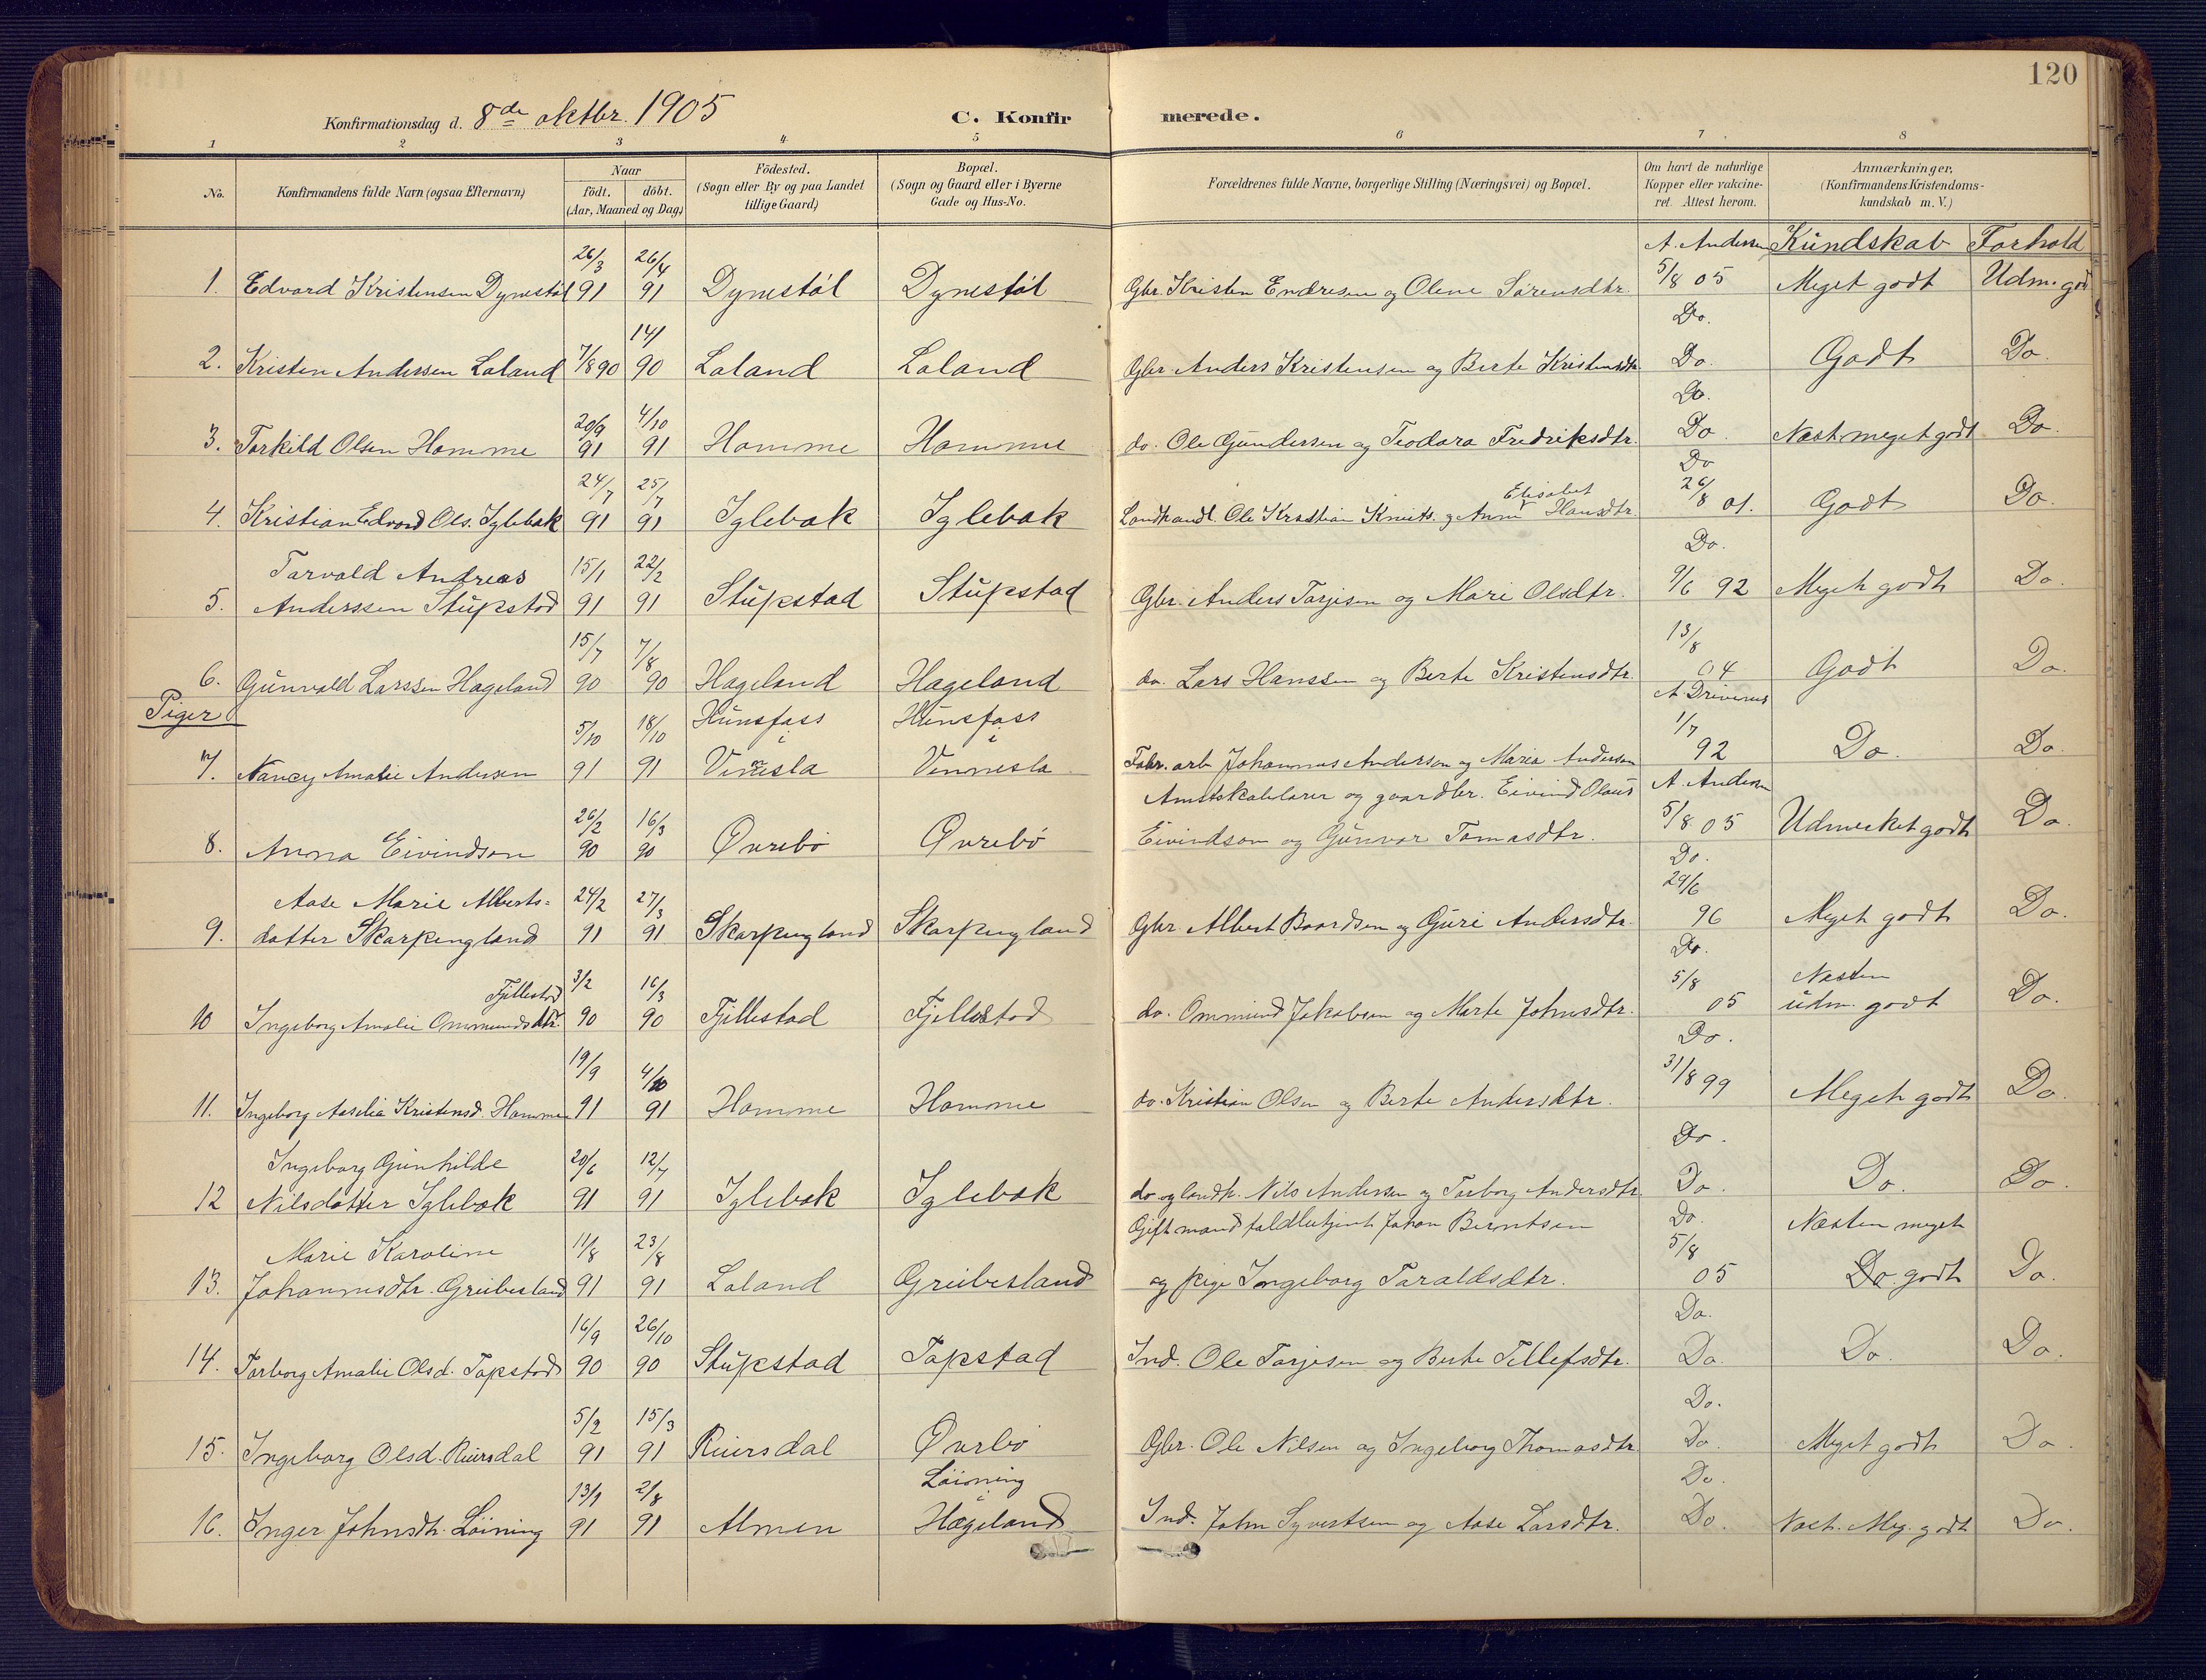 120
Konfirmationsdag d. 8de oktbr. 1905 C. Konfirmerede.
1 2 3 4 5 6 7 8
No. Konfirmandens fulde Navn (ogsaa Efternavn) Naar født. døbt. (Aar, Maaned og Dag) Födested. (Sogn eller By og paa Landet tillige Gaard) Bopæl. (Sogn og Gaard eller i Byerne Gade og Hus-No. Forældrenes fulde Navne, borgerlige Stilling (Næringsvei) og Bopæl. Om havt de naturlige Kopper eller vakcineret. Attest herom. Anmærkninger. (Konfirmandens Kristendomskundskab m. V.)
A. Andersen Kundskab Forhold
1. Edvard Kristensen Dynestøl 26/3 91 26/4 91 Dynestøl Dynestøl Gbr. Kristen Endresen og Olene Sørensdtr. 5/8 05 Meget godt Udm. godt
Do.
2. Kristen Anderssen Loland 7/8 90 14/ 90 Loland Loland Gbr. Anders Kristensen og Berte Kristensdtr. Do. Godt Do.
Do.
3. Torkild Olsen Homme 20/9 91 4/10 91 Homme Homme do. Ole Gundersen og Teodora Fredriksdtr. Do. Næst. meget godt Do.
Do
4. Kristian Edvard Ols. Iglebæk 24/7 91 25/7 91 Iglebæk Iglebæk Landhandl. Ole Kristian Knuts. og Anne Elisabet Hansdtr. 26/8 01. Godt Do.
Do.
5. Torvald Andreas Anderssen Stupstad 15/1 91 22/2 91 Stupstad Stupstad Gbr. Anders Torjesen og Mari Olsdtr. 9/6 92 Meget godt Do.
6. Gunvald Larssen Hageland 15/7 90 7/8 90 Hageland Hageland do. Lars Hanssen og Berte Kristensdtr. 13/8 04 Godt Do.
Piger
A. Drivenes
7. Nancy Amalie Andersen 5/10 91 18/10 91 Hunsfoss i Vennesla Hunsfoss i Vennesla Fabr. arb. Johannes Andersen og Maria Andersen 1/7 92 Do. Do.
A. Andersen
8. Anna Eivindson 26/2 90 16/3 90 Øvrebø Øvrebø Amtskabelører og gaardbr. Eivind Olaus Eivindson og Gunvor Tomasdtr. 5/8 05 Udmerket godt Do.
Do.
9. Aase Marie Albertsdatter Skarpengland 24/2 91 27/3 91 Skarpengland Skarpengland Gbr. Albert Baardsen og Guri Andersdtr. 29/6 96 Meget godt Do.
Do.
10 Ingeborg Amalie Ommundsdtr. Fjellestad 3/2 90 16/3 90 Fjellestad Fjellestad do. Ommund Jakobsen og Marte Johnsdtr. 5/8 05 Næsten udm. godt Do.
Do.
11. Ingeborg Aaselia Kristensd. Homme 19/9 91 4/10 91 Homme Homme do. Kristian Olsen og Berte Andersdtr. 31/8 99 Meget godt Do.
Do.
12 Ingeborg Gunhilde Nilsdatter Iglebæk 20/6 91 12/7 91 Iglebæk Iglebæk do og landh. Nils Andersen og Torborg Andersdtr. Do. Do. Do.
Do.
13. Marie Karoline Johannesdtr. Greibesland 11/8 91 23/8 91 Loland Greibesland Gift mand Johan Berntsen og pige Ingeborg Taraldsdtr. 5/8 05 Næsten meget godt Do.
Do.
14. Torborg Amalie Olsd. Topstad 16/9 90 26/10 90 Stupstad Topstad Ind. Ole Torjesen og Berte Tellefsdtr. Do. Do. Do.
Do.
15. Ingeborg Olsd. Reiersdal 5/2 91 15/3 91 Reiersdal Øvrebø Gbr. Ole Nilsen og Ingeborg Thomasdtr. Do. Meget godt Do.
Do.
16. Inger Johnsdtr. Løining 13/9 91 2/8 91 Almen Løining i Hageland Ind. John Syvertsen og Aase Larsdtr. Do. Næst. Meg. godt Do.